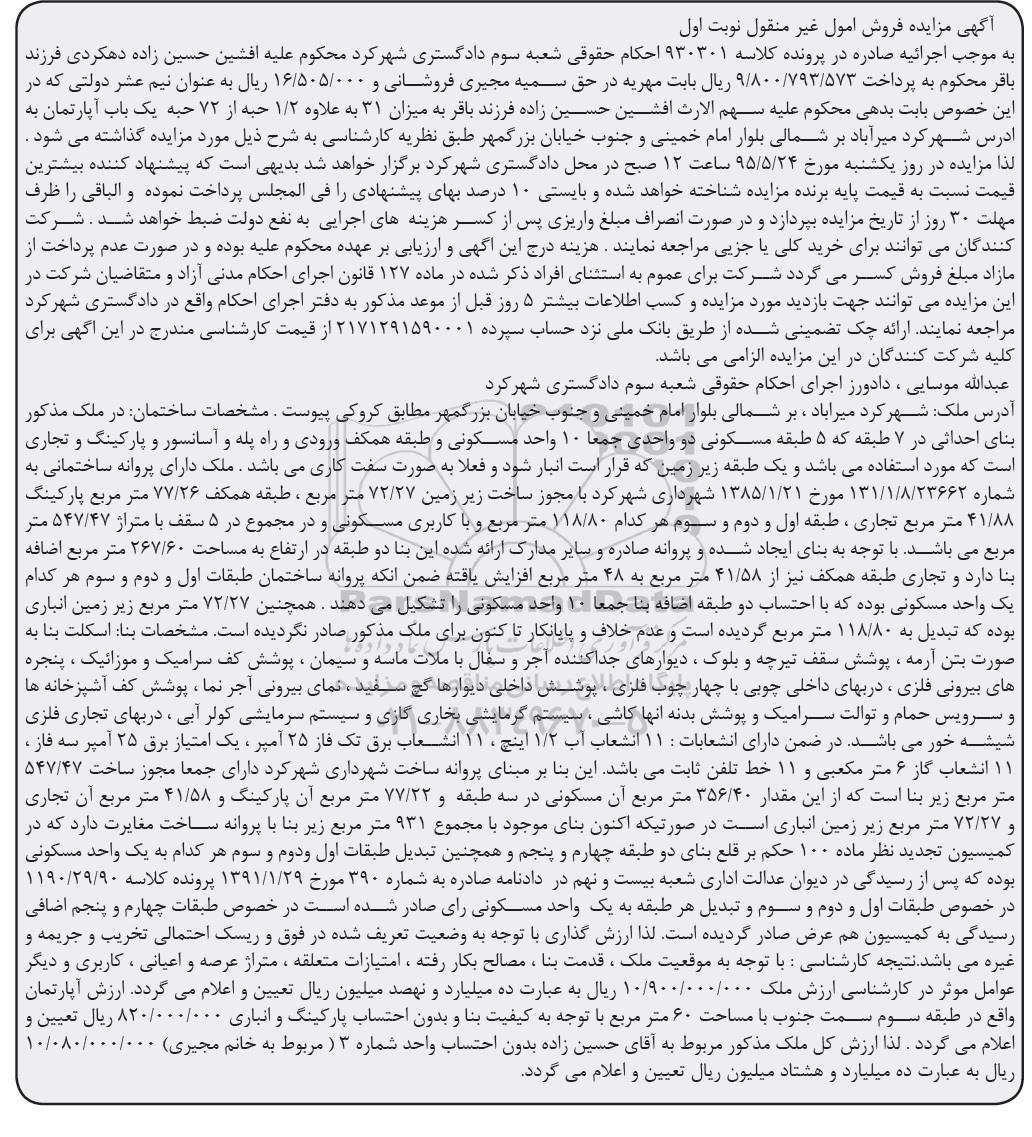 آگهی مزایده فروش امول غیر منقول نوبت اول
به موجب اجرائیه صادره در پرونده کلاسه ۹۳۰۳۰۱ احکام حقوقی شعبه سوم دادگستری شهرکرد محکوم علیه افشین حسین زاده دهکردی فرزند
باقر محکوم به پرداخت ۹/۸۰۰/۷۹۳/۵۷۳ ریال بابت مهریه در حق سمیه مجیری فروشانی و ۱۶/۵۰۵/۰۰۰ ریال به عنوان نیم عشر دولتی که در
این خصوص بابت بدهی محکوم علیه سهم الارث افشین حسین زاده فرزند باقر به میزان ۳۱ به علاوه ۱/۲ حبه از ۷۲ حبه یک باب آپارتمان به
ادرس شهرکرد میرآباد بر شمالی بلوار امام خمینی و جنوب خیابان بزرگمهر طبق نظریه کارشناسی به شرح ذیل مورد مزایده گذاشته می شود .
لذا مزایده در روز یکشنبه مورخ ۹۵/۵/۲۴ ساعت ۱۲ صبح در محل دادگستری شهرکرد برگزار خواهد شد بدیهی است که پیشنهاد کننده بیشترین
قیمت نسبت به قیمت پایه برنده مزایده شناخته خواهد شده و بایستی ۱۰ درصد بهای پیشنهادی را فی المجلس پرداخت نموده و الباقی را ظرف
مهلت ۳۰ روز از تاریخ مزایده بپردازد و در صورت انصراف مبلغ واریزی پس از کسر هزینه های اجرایی به نفع دولت ضبط خواهد شد . شرکت
کنندگان می توانند برای خرید کلی یا جزیی مراجعه نمایند . هزینه درج این اگهی و ارزیابی بر عهده محکوم علیه بوده و در صورت عدم پرداخت از
مازاد مبلغ فروش کسر می گردد شرکت برای عموم به استثنای افراد ذکر شده در ماده ۱۲۷ قانون اجرای احکام مدنی آزاد و متقاضیان شرکت در
این مزایده می توانند جهت بازدید مورد مزایده و کسب اطلاعات بیشتر ۵ روز قبل از موعد مذکور به دفتر اجرای احکام واقع در دادگستری شهرکرد
مراجعه نمایند. ارائه چک تضمینی شده از طریق بانک ملی نزد حساب سپرده ۲۱۷۱۲۹۱۵۹۰۰۰۱ از قیمت کارشناسی مندرج در این اگهی برای
کلیه شرکت کنندگان در این مزایده الزامی می باشد.
عبدالله موسایی ، دادورز اجرای احکام حقوقی شعبه سوم دادگستری شهرکرد
آدرس ملک: شهرکرد میراباد ، بر شمالی بلوار امام خمینی و جنوب خیابان بزرگمهر مطابق کروکی پیوست . مشخصات ساختمان: در ملک مذکور
بنای احداثی در ۷ طبقه که ۵ طبقه مسکونی دو واحدی جمعا ۱۰ واحد مسکونی و طبقه همکف ورودی و راه پله و آسانسور و پارکینگ و تجاری
است که مورد استفاده می باشد و یک طبقه زیر زمین که قرار است انبار شود و فعلا به صورت سفت کاری می باشد . ملک دارای پروانه ساختمانی به
شماره ۱۳۱/۱/۸/۲۳۶۶۲ مورخ ۱۳۸۵/۱/۲۱ شهرداری شهرکرد با مجوز ساخت زیر زمین ۷۲/۲۷ متر مربع ، طبقه همکف ۷۷/۲۶ متر مربع پارکینگ
۴۱/۸۸ متر مربع تجاری ، طبقه اول و دوم و سوم هر کدام ۱۱۸/۸۰ متر مربع و با کاربری مسکونی و در مجموع در ۵ سقف با متراژ ۵۴۷/۴۷ متر
مربع می باشد. با توجه به بنای ایجاد شده و پروانه صادره و سایر مدارک ارائه شده این بنا دو طبقه در ارتفاع به مساحت ۲۶۷/۶۰ متر مربع اضافه
بنا دارد و تجاری طبقه همکف نیز از ۴۱/۵۸ متر مربع به ۴۸ متر مربع افزایش یافته ضمن انکه پروانه ساختمان طبقات اول و دوم و سوم هر کدام
یک واحد مسکونی بوده که با احتساب دو طبقه اضافه بنا جمعا ۱۰ واحد مسکونی را تشکیل می دهند . همچنین ۷۲/۲۷ متر مربع زیر زمین انباری
بوده که تبدیل به ۱۱۸/۸۰ متر مربع گردیده است و عدم خلاف و پایانکار تا کنون برای ملک مذکور صادر نگردیده است. مشخصات بنا: اسکلت بنا به
صورت بتن آرمه ، پوشش سقف تیرچه و بلوک ، دیوارهای جداکننده آجر و سفال با ملات ماسه و سیمان ، پوشش کف سرامیک و موزائیک ، پنجره
های بیرونی فلزی ، دربهای داخلی چوبی با چهار چوب فلزی ، پوشش داخلی دیوارها گچ سفید ، نمای بیرونی آجر نما ، پوشش کف آشپزخانه ها
و سرویس حمام و توالت سرامیک و پوشش بدنه انها کاشی ، سیستم گرمایشی بخاری گازی و سیستم سرمایشی کولر آبی ، دربهای تجاری فلزی
شیشه خور می باشد. در ضمن دارای انشعابات : ۱۱ انشعاب آب ۱/۲ اینچ ، ۱۱ انشعاب برق تک فاز ۲۵ آمپر ، یک امتیاز برق ۲۵ آمپر سه فاز ،
۱۱ انشعاب گاز ۶ متر مکعبی و ۱۱ خط تلفن ثابت می باشد. این بنا بر مبنای پروانه ساخت شهرداری شهرکرد دارای جمعا مجوز ساخت ۵۴۷/۴۷
متر مربع زیر بنا است که از این مقدار ۳۵۶/۴۰ متر مربع آن مسکونی در سه طبقه و ۷۷/۲۲ متر مربع آن پارکینگ و ۴۱/۵۸ متر مربع آن تجاری
و ۷۲/۲۷ متر مربع زیر زمین انباری است در صورتیکه اکنون بنای موجود با مجموع ۹۳۱ متر مربع زیر بنا با پروانه ساخت مغایرت دارد که در
کمیسیون تجدید نظر ماده ۱۰۰ حکم بر قلع بنای دو طبقه چهارم و پنجم و همچنین تبدیل طبقات اول ودوم و سوم هر کدام به یک واحد مسکونی
بوده که پس از رسیدگی در دیوان عدالت اداری شعبه بیست و نهم در دادنامه صادره به شماره ۳۹۰ مورخ ۱۳۹۱/۱/۲۹ پرونده کلاسه ۱۱۹۰/۲۹/۹۰
در خصوص طبقات اول و دوم و سوم و تبدیل هر طبقه به یک واحد مسکونی رای صادر شده است در خصوص طبقات چهارم و پنجم اضافی
رسیدگی به کمیسیون هم عرض صادر گردیده است. لذا ارزش گذاری با توجه به وضعیت تعریف شده در فوق و ریسک احتمالی تخریب و جریمه و
غیره می باشد.نتیجه کارشناسی : با توجه به موقعیت ملک ، قدمت بنا ، مصالح بکار رفته ، امتیازات متعلقه ، متراژ عرصه و اعیانی ، کاربری و دیگر
عوامل موثر در کارشناسی ارزش ملک ۱۰/۹۰۰/۰۰۰/۰۰۰ ریال به عبارت ده میلیارد و نهصد میلیون ریال تعیین و اعلام می گردد. ارزش آپارتمان
واقع در طبقه سوم سمت جنوب با مساحت ۶۰ متر مربع با توجه به کیفیت بنا و بدون احتساب پارکینگ و انباری ۸۲۰/۰۰۰/۰۰۰ ریال تعیین و
اعلام می گردد . لذا ارزش کل ملک مذکور مربوط به آقای حسین زاده بدون احتساب واحد شماره ۳ ( مربوط به خانم مجیری) ۱۰/۰۸۰/۰۰۰/۰۰۰
ریال به عبارت ده میلیارد و هشتاد میلیون ریال تعیین و اعلام می گردد.
ParsNamadData